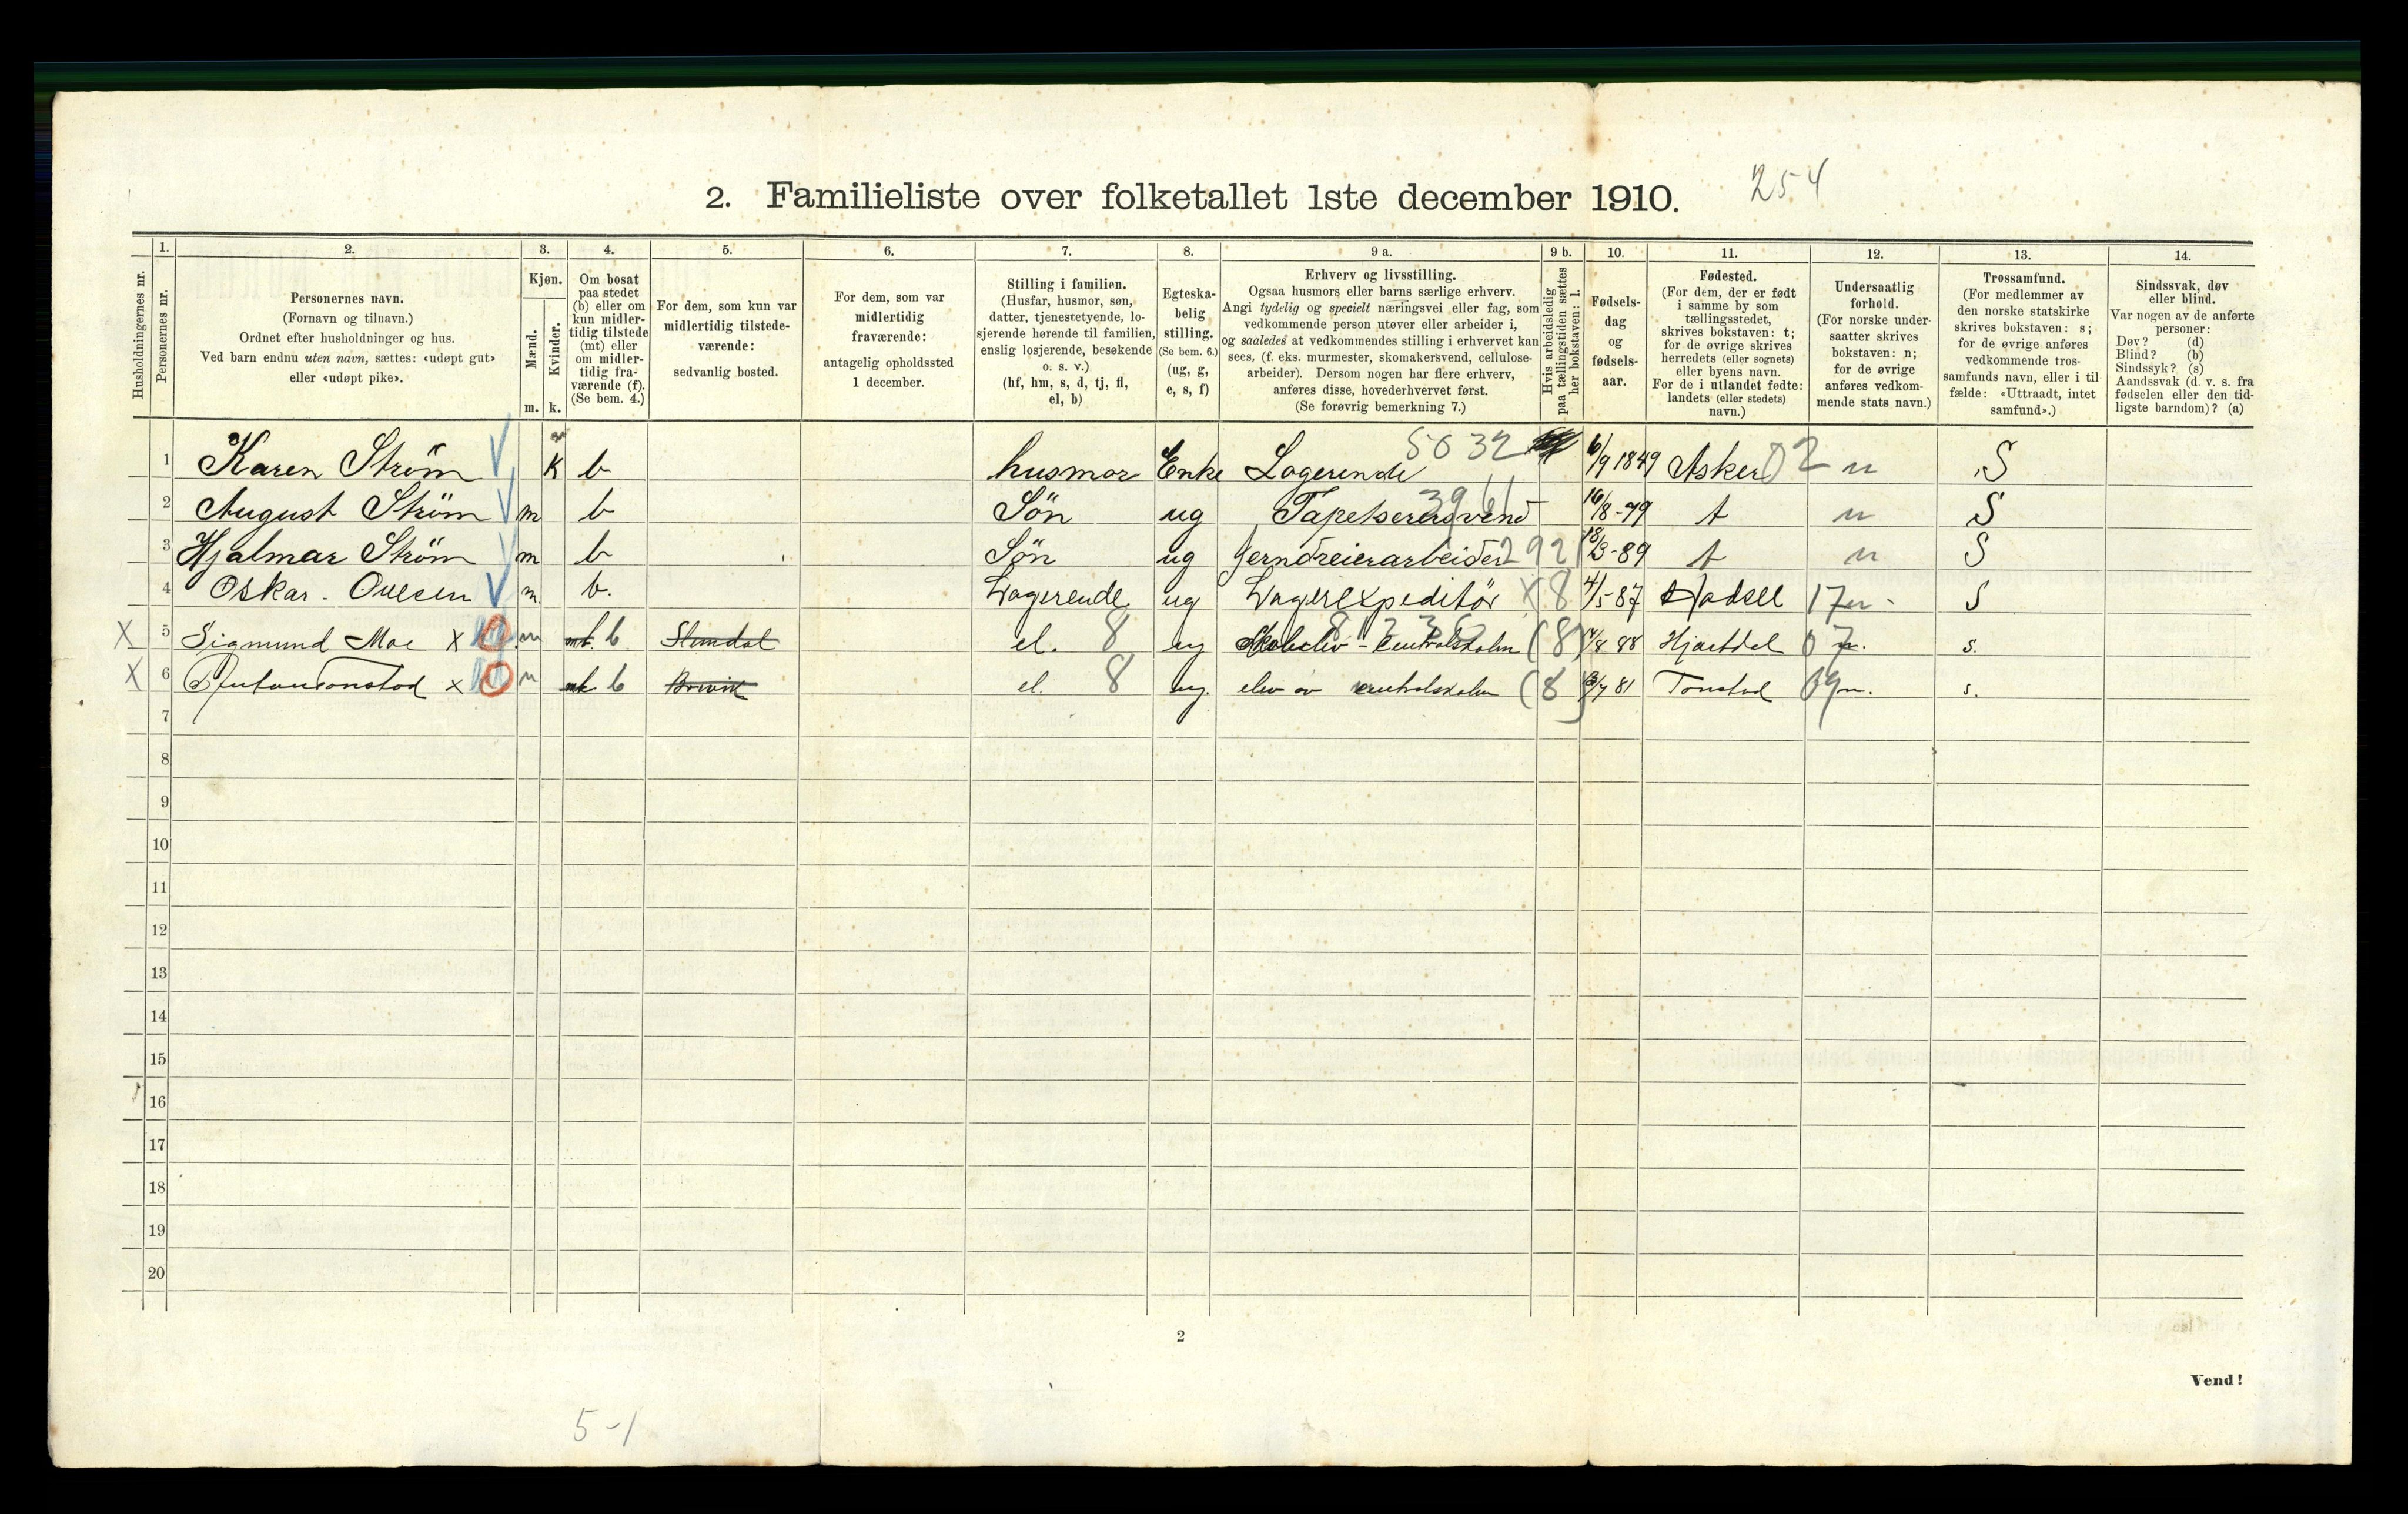 254
2. Familieliste over folketallet 1ste december 1910.
Husholdningernes nr.
1.
Personernes nr.
2.
Personernes navn.
(Fornavn og tilnavn.)
Ordnet efter husholdninger og hus.
Ved barn endnu uten navn, sættes: «udøpt gut»
eller «udøpt pike».
3.
Kjøn.
Mænd.
Kvinder.
m.
k.
4.
Om bosat
paa stedet
(b) eller om
kun midler-
tidig tilstede
(mt) eller
om midler-
tidig fra-
værende (f).
(Se bem. 4.)
5.
For dem, som kun var
midlertidig tilstede-
værende:
sedvanlig bosted.
6.
For dem, som var
midlertidig
fraværende:
antagelig opholdssted
1 december.
7.
Stilling i familien.
(Husfar, husmor, søn,
datter, tjenestetyende, lo-
sjerende hørende til familien,
enslig losjerende, besøkende
o. s. v.)
(hf, hm, s, d, tj, fl,
el, b)
8.
Egteska-
belig
stilling.
(Se bem. 6.)
(ug, g,
e, s, f)
9 a.
Erhverv og livsstilling.
Ogsaa husmors eller barns særlige erhverv.
Angi tydelig og specielt næringsvei eller fag, som
vedkommende person utøver eller arbeider i,
og saaledes at vedkommendes stilling i erhvervet kan
sees, (f. eks. murmester, skomakersvend, cellulose-
arbeider). Dersom nogen har flere erhverv,
anføres disse, hovederhvervet først.
(Se forøvrig bemerkning 7.)
9 b.
Hvis arbeidsledig
paa tællingstiden sættes
her bokstaven: l.
10.
Fødsels-
dag
og
fødsels-
aar.
11.
Fødested.
(For dem, der er født
i samme by som
tællingsstedet,
skrives bokstaven: t;
for de øvrige skrives
herredets (eller sognets)
eller byens navn.
For de i utlandet fødte:
landets (eller stedets)
navn.)
12.
Undersaatlig
forhold.
(For norske under-
saatter skrives
bokstaven: n;
for de øvrige
anføres vedkom-
mende stats navn.)
13.
Trossamfund.
(For medlemmer av
den norske statskirke
skrives bokstaven: s;
for de øvrige anføres
vedkommende tros-
samfunds navn, eller i til
fælde: «Uttraadt, intet
samfund».)
14.
Sindssvak, døv
eller blind.
Var nogen av de anførte
personer:
Døv? (d)
Blind? (b)
Sindssyk? (s)
Aandssvak (d. v. s. fra
fødselen eller den tid-
ligste barndom)? (a)
1 Karen Ström K b husmor Enke Logerende 5032 6/9 1849 Asker 02 n S
2 August Ström m b Sön ug Tapetserersvend 16/8-79 t n S
3 Hjalmar Ström m b Sön ug Jerndreierarbeider 2921 89 t n S
4 Oskar Ovesen m. b. Logerende ug Lagerexpeditör X 8 4/5-87 Hadsel 17 n - S
X 5 Sigmund Moe X 0 m mt. b el. 8 ug Centralskolen (8) /8 88 Hjartdal 07 n. s.
X 6 Tonstad X 0 m mt b Brevik el. 8 ug. elev av centralskolen (8) /7 81 Tonstad 09 n. s.
7
8
9
10
11
12
13
14
15
16
17
18
19
20
2
Vend!
5-1